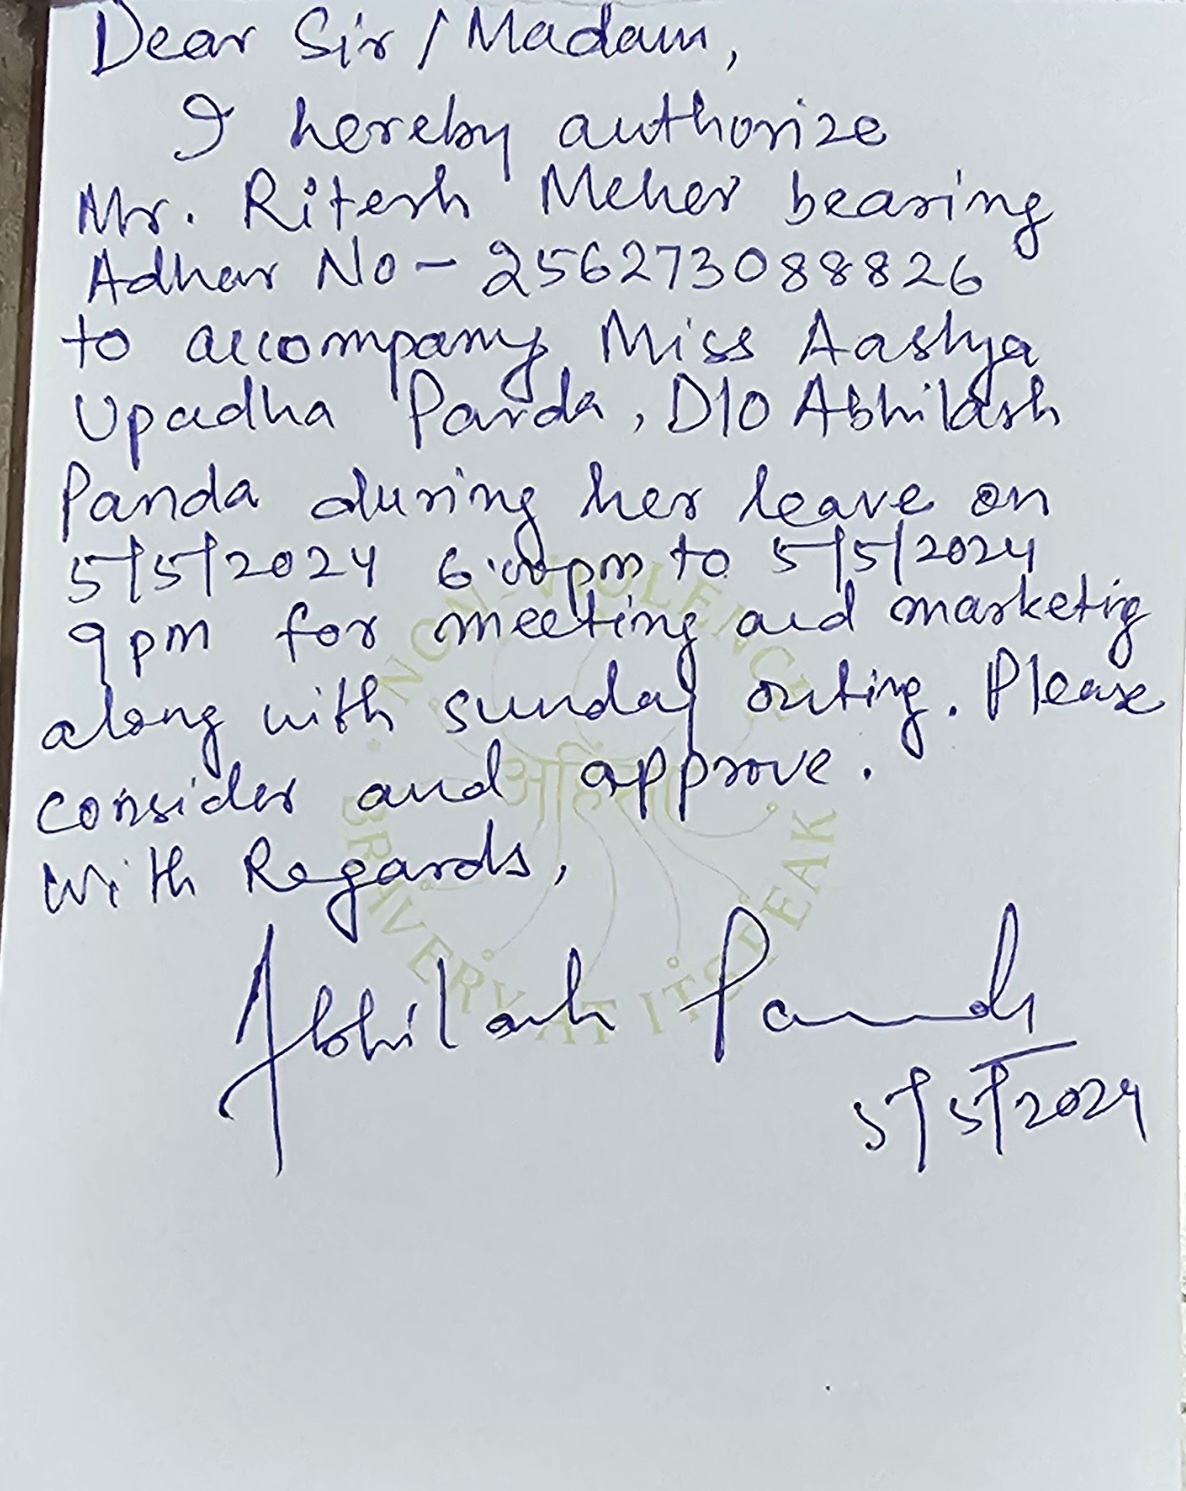 Dear Sir / Madam,
I hereby authorize
Mr. Ritesh Meher bearing
Adhar No - 256273088826
to accompany Miss Aashya
Upadha Panda, D/O Abhilash
Panda during her leave on
5/5/2024 6:00pm to 5/5/2024
9pm for meeting and marketig
along with sunday outing. Please
consider and approve.
With Regards,
Abhilash Panda
5/5/2024
NON-VIOLENCE
अहिंसा
BRAVERY AT ITS PEAK